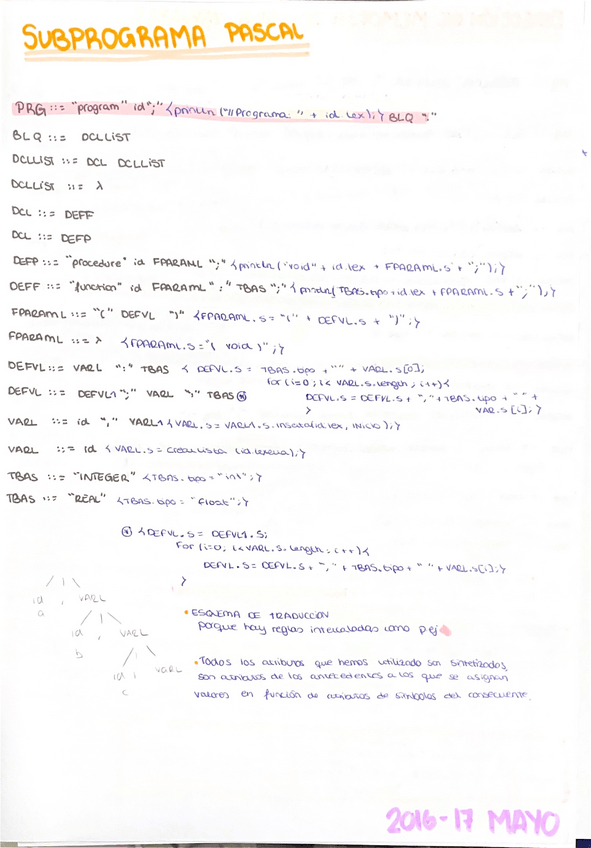 SUBPROGRAMA PASCAL
PRG ::= "program" id ";" {println ("// Programa: " + id.lex);} BLQ "."
BLQ ::= DCLLIST
DCLLIST ::= DCL DCLLIST
DCLLIST ::= λ
DCL ::= DEFF
DCL ::= DEFP
DEFP ::= "procedure" id FPARAML ";" {println ("void" + id.lex + FPARAML.s + ";");}
DEFF ::= "function" id FPARAML ":" TBAS ";" {println( TBAS.tipo + id.lex + FPARAML.s + ";");}
FPARAML ::= "(" DEFVL ")" {FPARAML.s = "(" + DEFVL.s + ")";}
FPARAML ::= λ {FPARAML.s = "( void )";}
DEFVL ::= VARL ":" TBAS { DEFVL.s = TBAS.tipo + "" + VARL.s[0];
for (i=0; i< VARL.s.length; i++){
DEFVL.s = DEFVL.s + "," + TBAS.tipo + " " +
VAR.s [i];}
}
DEFVL ::= DEFVL1 ";" VARL ":" TBAS ⊛
VARL ::= id "," VARL1 {VARL.s = VARL1.s.inserta(id.lex, INICIO);}
VARL ::= id { VARL.s = crearLista (id.lexema);}
TBAS ::= "INTEGER" {TBAS.tipo = "int";}
TBAS ::= "REAL" {TBAS.tipo = "float";}
⊛ {DEFVL.s = DEFVL1.s;
for (i=0, i< VARL.s.length; i++){
DEFVL.s = DEFVL.s + "," + TBAS.tipo + " " + VARL.s[i];}
}
id , VARL
a
id , VARL
b
id , VARL
c
• ESQUEMA DE TRADUCCION
porque hay reglas intercaladas como p.ej
• Todos los atributos que hemos utilizado son sintetizados,
son atributos de los antecedentes a los que se asignan
valores en función de atributos de símbolos del consecuente.
2016-17 MAYO